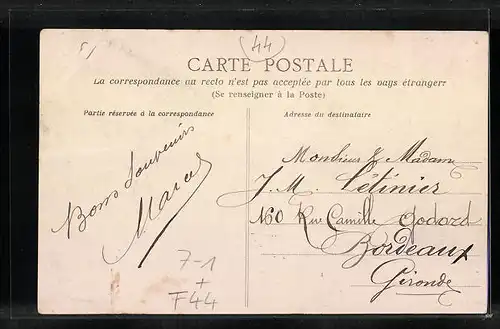 5/
44
CARTE POSTALE
La correspondance au recto n'est pas acceptée par tous les pays étrangers
(Se renseigner à la Poste)
Partie réservée à la correspondance
Adresse du destinataire
Bons Souvenirs
Marcel
Monsieur & Madame
J. M. Létinier
160 Rue Camille Godard
Bordeaux
Gironde
7-1
+
F44